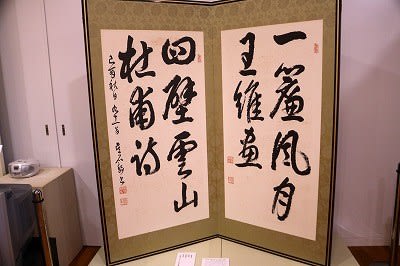 一簾風月
王維畫
四壁雲山
杜甫詩
秋日